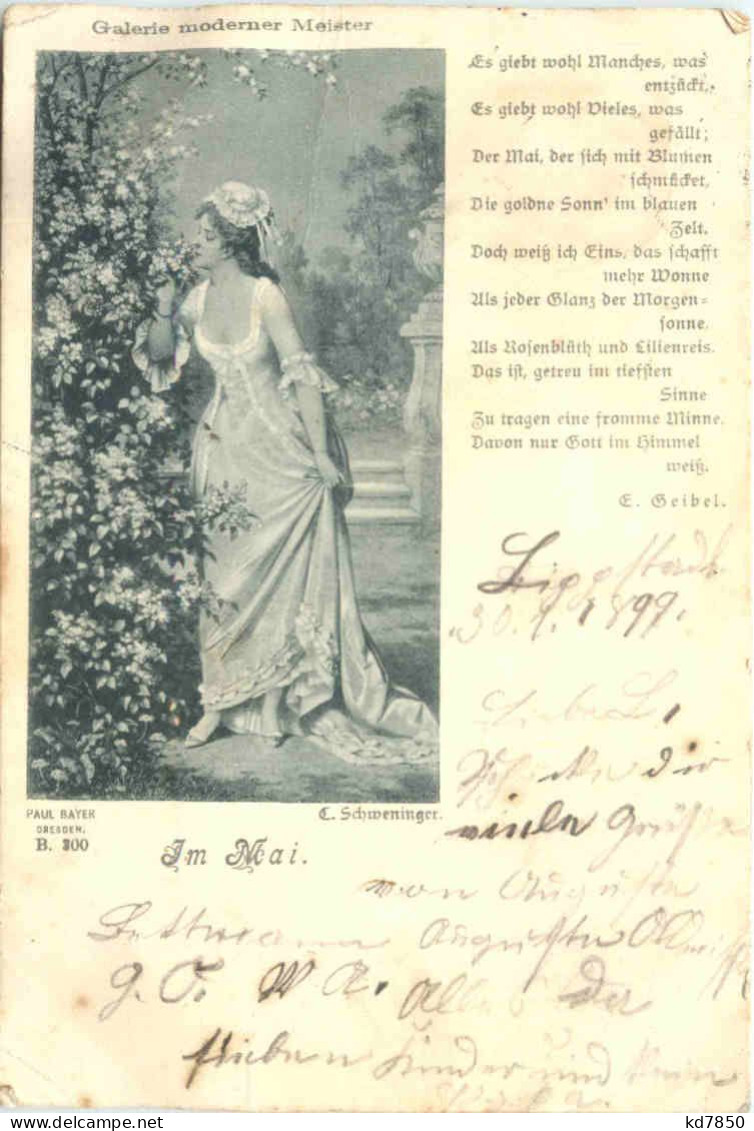 Galerie moderner Meister
Es giebt wohl Manches, was
entzückt,
Es giebt wohl Vieles, was
gefällt;
Der Mai, der sich mit Blumen
schmücket,
Die goldne Sonn' im blauen
Zelt.
Doch weiß ich Eins, das schafft
mehr Wonne
Als jeder Glanz der Morgen=
sonne,
Als Rosenblüth und Lilienreis.
Das ist, getreu im tiefsten
Sinne
Zu tragen eine fromme Minne.
Davon nur Gott im Himmel
weiß.
E. Geibel.
PAUL BAYER
DRESDEN.
B. 300
C. Schweninger.
Im Mai.
Lippstadt
30. 1. 1899.
Schicke dir
viele Grüße
von Auguste
Auguste
der
lieben Kinder und
kd7850